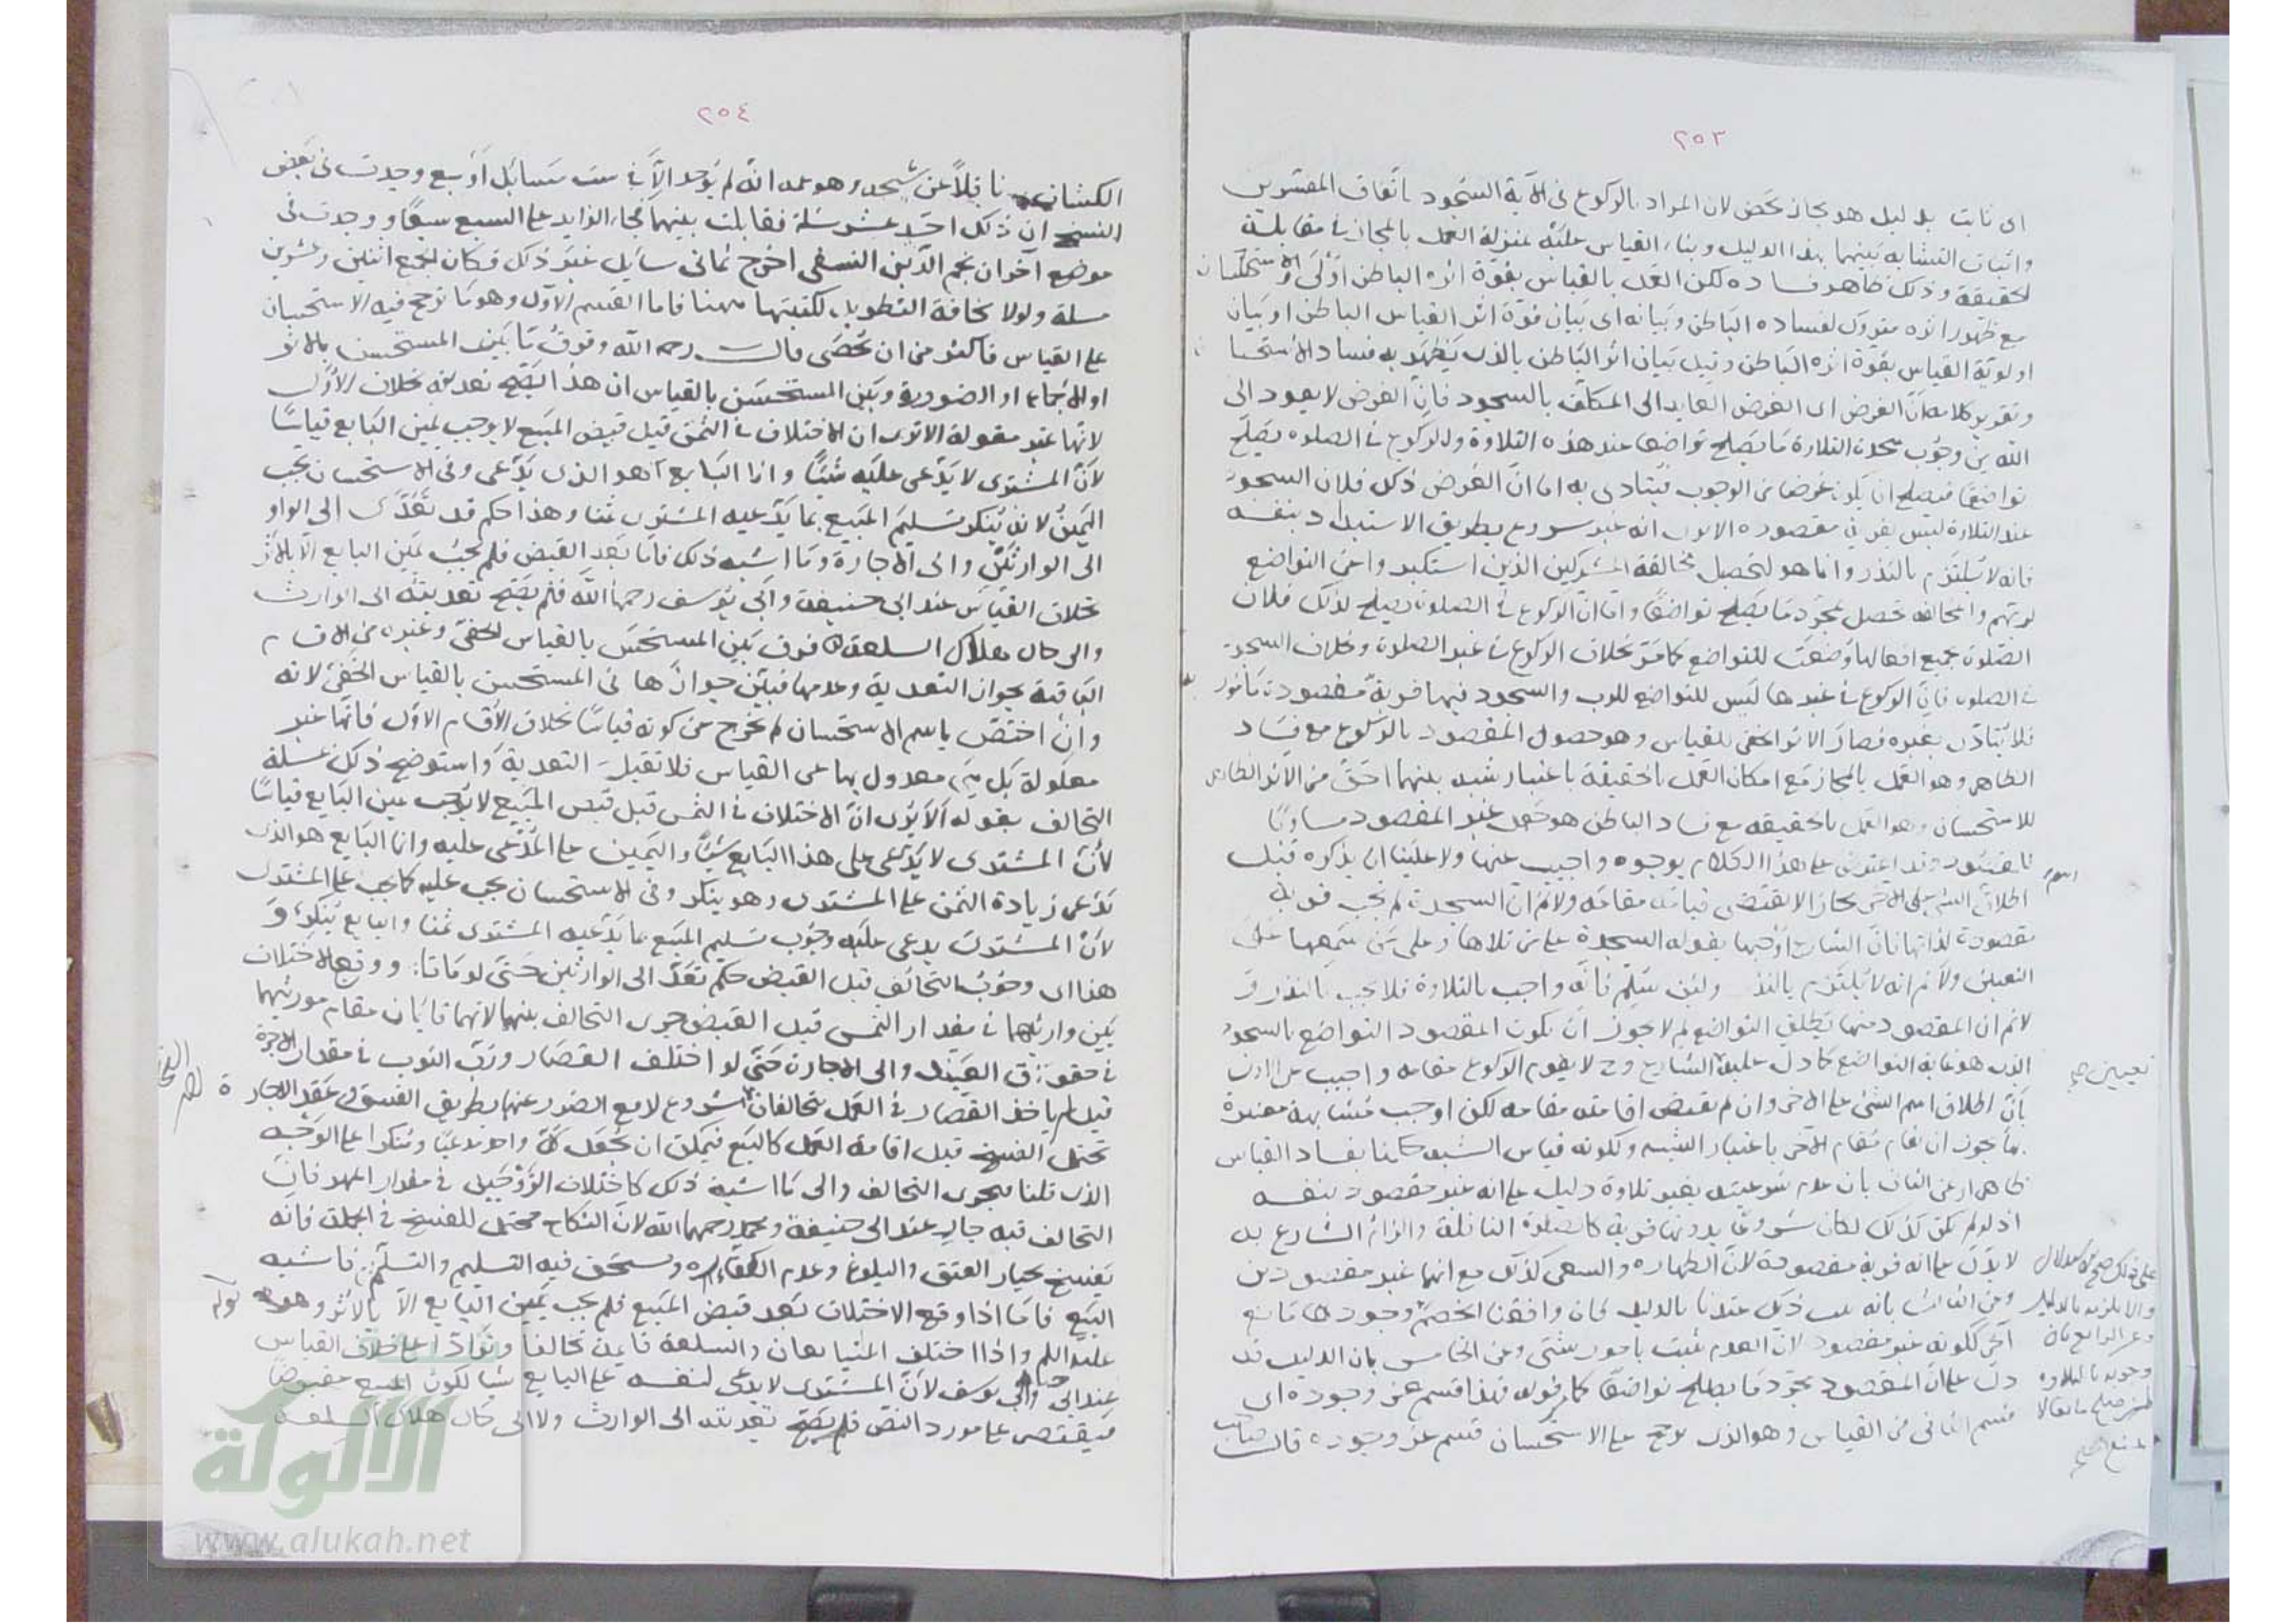 ٢٥٣
اى ثابت بدليل هو مجاز محض لان المراد بالركوع فى الآية السجود باتفاق المفسرين
واثبات التشابه بينهما بهذا الدليل وبناء القياس عليه بمنزلة العمل بالمجاز فى مقابلة
الحقيقة وذلك ظاهر فساده لكن العمل بالقياس بقوة اثره الباطن اولى والاستحسان
مع ظهور اثره متروك لفساده الباطن وبيانه اى بيان قوة اثر القياس الباطن او بيان
اولوية القياس بقوة اثره الباطن وقيل بيان اثر الباطن بالذى يظهر به فساد الاستحسان
وتقرير كلامه ان الغرض اى الغرض العايد الى المكلف بالسجود فان الغرض لا يعود الى
الله من وجوب سجدة التلاوة ما يصلح تواضعا عند هذه التلاوة والركوع فى الصلوة يصلح
تواضعا فيصلح ان يكون غرضا من الوجوب فيتادى به اما ان الغرض ذلك فلان السجود
عند التلاوة ليس بقربة مقصودة الا يرى انه غير مشروع بطريق الاستبداد بنفسه
فانه لا يلتزم بالنذر وانما هو لتحصيل مخالفة المشركين الذين استكبروا عن التواضع
لربهم والمخالفة تحصل بمجرد ما يصلح تواضعا واما ان الركوع فى الصلوة يصلح لذلك فلان
الصلوة جميع افعالها وضعت للتواضع كما مر بخلاف الركوع فى غير الصلوة وبخلاف السجدة
فى الصلوة فان الركوع فى غيرها ليس للتواضع للرب والسجود فيها قربة مقصودة مأمور به
فلا يتأدى بغيره فصار الاثر الخفى للقياس وهو حصول المقصود بالركوع مع فساد
الظاهر وهو العمل بالمجاز مع امكان العمل بالحقيقة باعتبار شبه بينهما احق من الاثر الظاهر
للاستحسان وهو العمل بالحقيقة مع فساد الباطن هو جعل غير المقصود مساويا
للمقصود وقد اعترض على هذا الكلام بوجوه واجيب عنها ولا علينا ان نذكره قيل
اطلاق اسم الشئ على الآخر مجازا لا يقتضى قيامه مقامه ولا نم ان السجدة لم تجب قربة
مقصودة لذاتها فان الشارع اوجبها بقوله السجدة على من تلاها وعلى من سمعها على
التعيين ولا نم انه لا يلتزم بالنذر ولئن سلم فانه واجب بالتلاوة فلا يجب بالنذر و
لا نم ان المقصود منها مطلق التواضع لم لا يجوز ان يكون المقصود التواضع بالسجود
الذى هو غاية التواضع كما دل عليه تعيين الشارع وح لا يقوم الركوع مقامه واجيب عن الاول
بان اطلاق اسم الشئ على الآخر وان لم يقتض اقامته مقامه لكن اوجب مشابهة معتبرة
بها يجوز ان يقام مقام الآخر باعتبار الشبه ولكونه قياس الشبه حكمنا بفساد القياس
ظاهرا وعن الثانى بان عدم شرعيته بغير تلاوة دليل على انه غير مقصود بنفسه
اذ لو لم يكن كذلك لكان مشروعا بدونها قربة كالصلوة النافلة والزام الشارع بل
لا يدل على انه قربة مقصودة لان الطهارة والسعى كذلك مع انهما غير مقصودين
وعن الثالث بانه يثبت ذلك عندنا بالدليل فان وافقنا الخصم وجودها مانع
آخر لكونه غير مقصود لان العدم يثبت بامور شتى وعن الخامس بان الدليل قد
دل على ان المقصود مجرد ما يصلح تواضعا كما مر قوله فهذا قسم عز وجوده اى
قسم الثانى من القياس وهو الذى يرجح على الاستحسان قسم عز وجوده قال صاحب
تعيين صح
٢٥٤
الكشف ناقلا عن شيخه وهو عمه انه لم يوجد الا فى ست مسائل او سبع وجدت فى بعض
النسخ ان ذلك احد عشر مسئلة فقابلت بينهما فجاء الزايد على السبع سبعا ووجدت فى
موضع آخر ان نجم الدين النسفى اخرج ثمانى مسايل غير ذلك فكان الجميع اثنين وعشرين
مسئلة ولولا مخافة التطويل لكتبتها ههنا فاما القسم الاول وهو ما ترجح فيه الاستحسان
على القياس فاكثر من ان يحصى قال رحمه الله وفرق ما بين المستحسن بالاثر
او الاجماع او الضرورة وبين المستحسن بالقياس ان هذا يصح تعديته بخلاف الاول
لانها غير معقولة الا ترى ان الاختلاف فى الثمن قبل قبض المبيع لا يوجب يمين البايع قياسا
لان المشترى لا يدعى عليه شيئا وانما البايع هو الذى يدعى وفى الاستحسان يجب
اليمين لانه ينكر تسليم المبيع بما يدعيه المشترى ثمنا وهذا حكم قد تعدى الى الوارث
الى الوارثين والى الاجارة وما اشبه ذلك فاما بعد القبض فلم يجب يمين البايع الا بالاثر
بخلاف القياس عند ابى حنيفة وابى يوسف رحمهما الله فلم يصح تعديته الى الوارث
والى حال هلاك السلعة فرق بين المستحسن بالقياس الخفى وغيره من الاقسام
الباقية بجواز التعدية وعدمها فبين جوازها فى المستحسن بالقياس الخفى لانه
وان اختص باسم الاستحسان لم يخرج من كونه قياسا بخلاف الاقسام الاول فانها غير
معلولة بل هى معدول بها عن القياس فلا تقبل التعدية واستوضح ذلك بمسئلة
التحالف بقوله الا يرى ان الاختلاف فى الثمن قبل قبض المبيع لا يوجب يمين البايع قياسا
لان المشترى لا يدعى على هذا البايع شيئا واليمين على المدعى عليه وانما البايع هو الذى
يدعى زيادة الثمن على المشترى وهو ينكر وفى الاستحسان يجب عليه كما يجب على المشترى
لان المشترى يدعى عليه وجوب تسليم المبيع بما يدعيه المشترى ثمنا والبايع ينكره و
هذا اى وجوب التحالف قبل القبض حكم تعدى الى الوارثين حتى لو ماتا ووقع الاختلاف
بين وارثيهما فى مقدار الثمن قبل القبض جرى التحالف بينهما لانهما قايمان مقام مورثيهما
فى حقوق العقد والى الاجارة حتى لو اختلف القصار ورب الثوب فى مقدار الاجرة
قبل ان ياخذ القصار فى العمل يتحالفان شروع لدفع الضرر عنهما بطريق الفسخ وعقد الاجارة
يحتمل الفسخ قبل اقامة العمل كالبيع فيمكن ان يجعل كل واحد مدعيا ومنكرا على الوجه
الذى قلنا فيجرى التحالف والى ما اشبه ذلك كاختلاف الزوجين فى مقدار المهر فان
التحالف فيه جار عند ابى حنيفة ومحمد رحمهما الله لان النكاح محتمل للفسخ فى الجملة فانه
يفسخ بخيار العتق والبلوغ وعدم الكفاءة ويستحق فيه التسليم والتسلم فاشبه
البيع فاما اذا وقع الاختلاف بعد قبض المبيع فلم يجب يمين البايع الا بالاثر وهو قوله
عليه السلم واذا اختلف المتبايعان والسلعة قايمة تحالفا وترادا على خلاف القياس
عند ابى حنيفة وابى يوسف لان المشترى لا يدعى لنفسه على البايع شيئا لكون المبيع مقبوضا
فيقتصر على مورد النص فلم يصح تعديته الى الوارث ولا الى حال هلاك السلعة
الألوكة
www.alukah.net